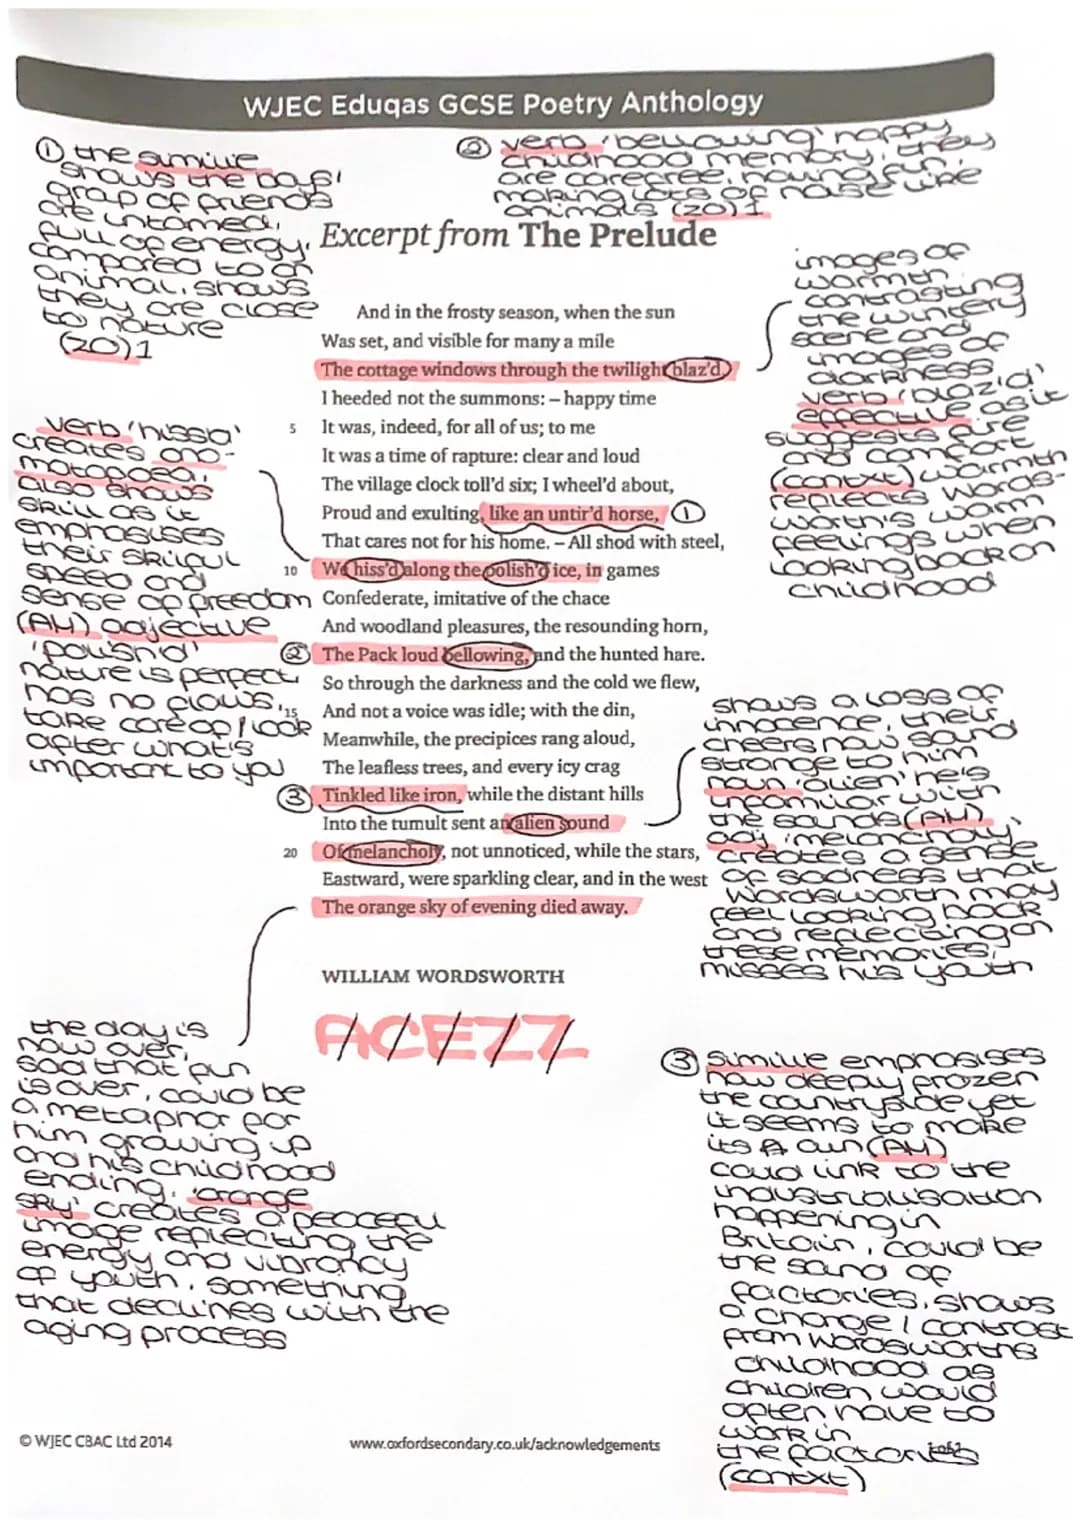 WJEC Eduqas GCSE Poetry Anthology
① the simile
shows the boys'
group of friends
are untamed,
full of energy.
compared to an
animal, shows
they are close
to nature
(ZO)1
② verb 'bellowing' happy
childhood memory, they
are carefree, having fun,
making lots of noise like
animals (ZO)1
Excerpt from The Prelude
images of
warmth
contrasting
the wintery
scene and
images of
darkness
verb 'blaz'd'
effective as it
suggests fire
and comfort
(context) warmth
reflects Words-
worth's warm
feelings when
looking back on
childhood
And in the frosty season, when the sun
Was set, and visible for many a mile
The cottage windows through the twilight blaz'd,
I heeded not the summons: – happy time
5 It was, indeed, for all of us; to me
It was a time of rapture: clear and loud
The village clock toll'd six; I wheel'd about,
Proud and exulting, like an untir'd horse, ①
That cares not for his home. – All shod with steel,
10 We hiss'd along the polish'd ice, in games
Confederate, imitative of the chace
And woodland pleasures, the resounding horn,
② The Pack loud bellowing, and the hunted hare.
So through the darkness and the cold we flew,
15 And not a voice was idle; with the din,
Meanwhile, the precipices rang aloud,
The leafless trees, and every icy crag
③ Tinkled like iron, while the distant hills
Into the tumult sent an alien sound
20 Of melancholy, not unnoticed, while the stars,
Eastward, were sparkling clear, and in the west
The orange sky of evening died away.
verb 'hiss'd'
creates ono-
matopoea,
also shows
skill as it
emphasises
their skilful
speed and
sense of freedom
(AH) adjective
'polish'd'
nature is perfect
has no flaws,
take care of / look
after what's
important to you
shows a loss of
innocence, their
cheers now sound
strange to him
noun 'alien' he's
unfamiliar with
the sounds (AH)
adj 'melancholy'
creates a sense
of sadness that
Wordsworth may
feel looking back
and reflecting on
these memories,
misses his youth
WILLIAM WORDSWORTH
A/C/E/Z/Z/
the day is
now over,
sad that fun
is over, could be
a metaphor for
him growing up
and his childhood
ending. 'orange
sky' creates a peaceful
image reflecting the
energy and vibrancy
of youth, something
that declines with the
aging process
③ simile emphasises
how deeply frozen
the countryside yet
it seems to make
its own (AH)
could link to the
industrialisation
happening in
Britain, could be
the sound of
factories, shows
a change / contrast
from Wordsworths
childhood as
children would
often have to
work in
the factories
(contxt)
© WJEC CBAC Ltd 2014
www.oxfordsecondary.co.uk/acknowledgements
1 of 1